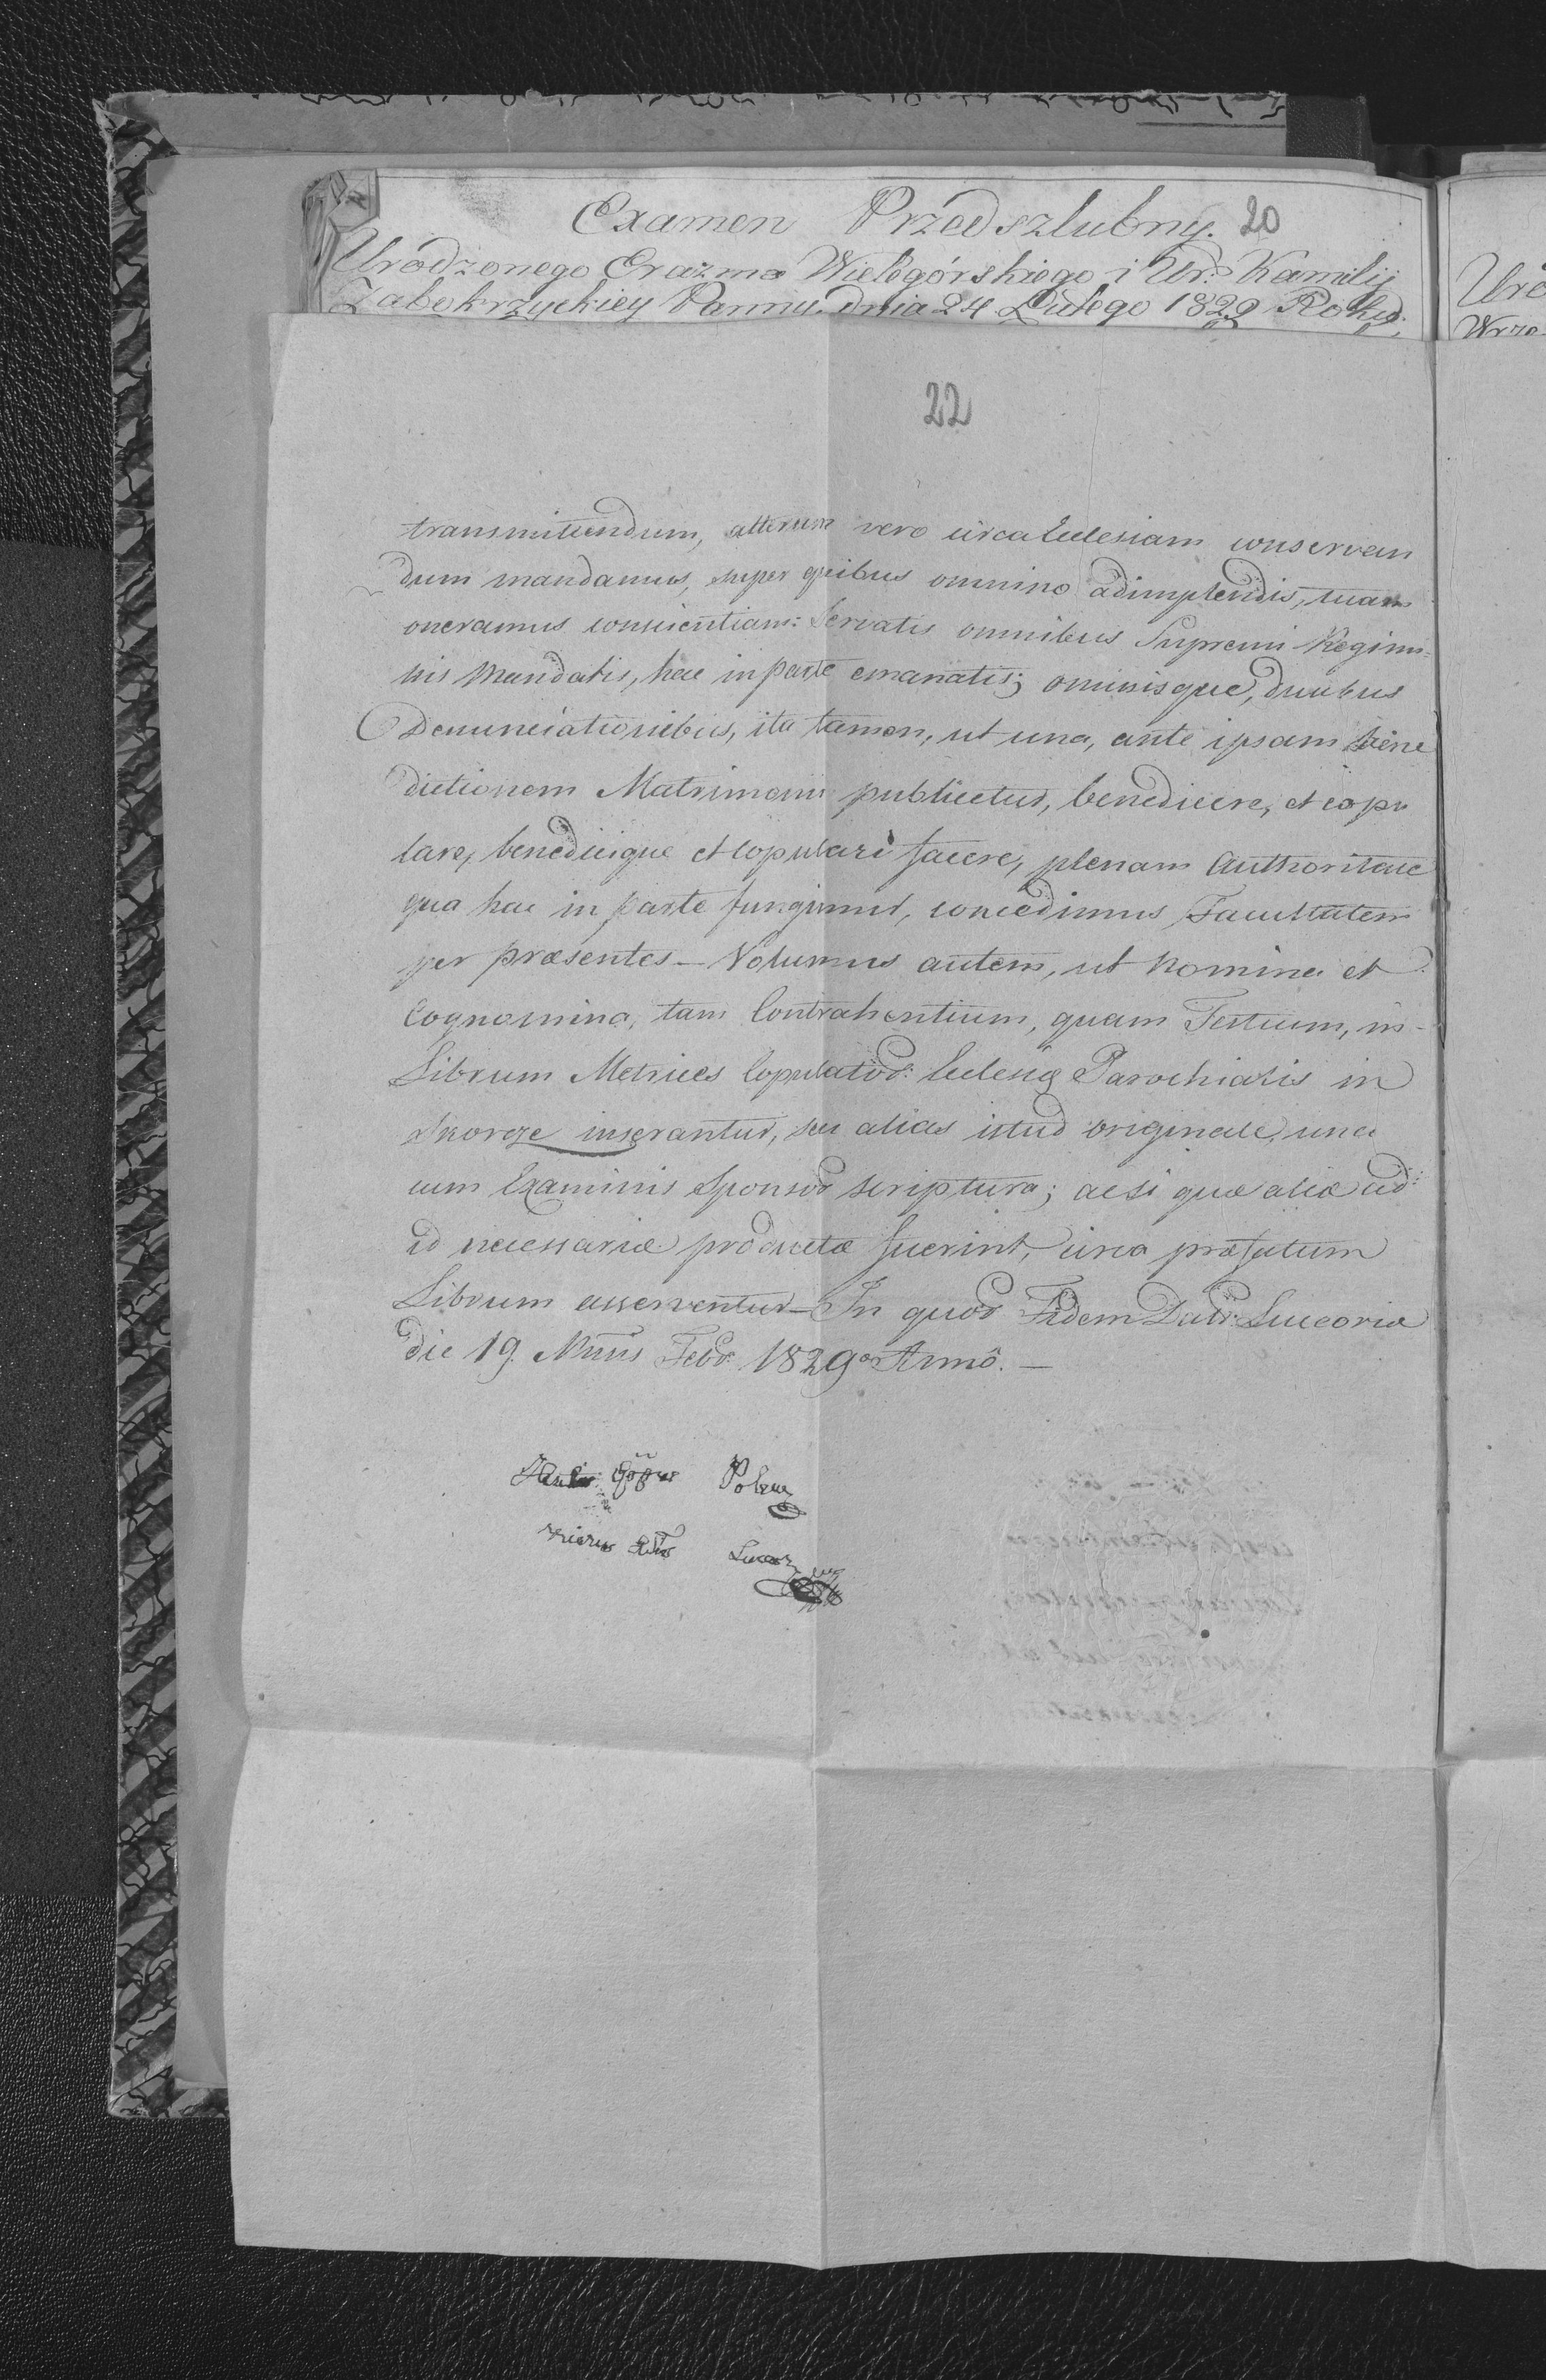 Examen Przedszlubny. 20
Urodzonego Erazma Wielogórskiego i Ur: Kamilij
Zabokrzyckiey Panny. dnia 24 Lutego 1829 Roku.
22
transmittendum, alterum vero circa Ecclesiam conservan
dum mandamus, super quibus omnino adimplendis, tuam
oneramus conscientiam: Servatis omnibus Supremi Regimi=
nis Mandatis, hac in parte emanatis; omissisque, duabus
Denunciationibus, ita tamen, ut una, ante ipsam bene
dictionem Matrimonii publicetur, benedicere, et copu
lare, benedicique et Copulari facere, plenam Authoritate
qua hac in parte fungimur, concedimus Facultatem
per præsentes — Volumus autem, ut Nomina et
Cognomina, tam Contrahentium, quam Testium, in-
Librum Metrices Copulator: Ecclesiæ Parochialis in
Skorze inserantur, seu alias istud originale, una
cum Examinis Sponsor scriptura; ac si quæ aliæ ad
id necessariæ productæ fuerint, circa præfatum
Librum asserventur — In quor Fidem Datt: Luceoriæ
die 19. Mnsis Febr. 1829o Anno. —
Uro